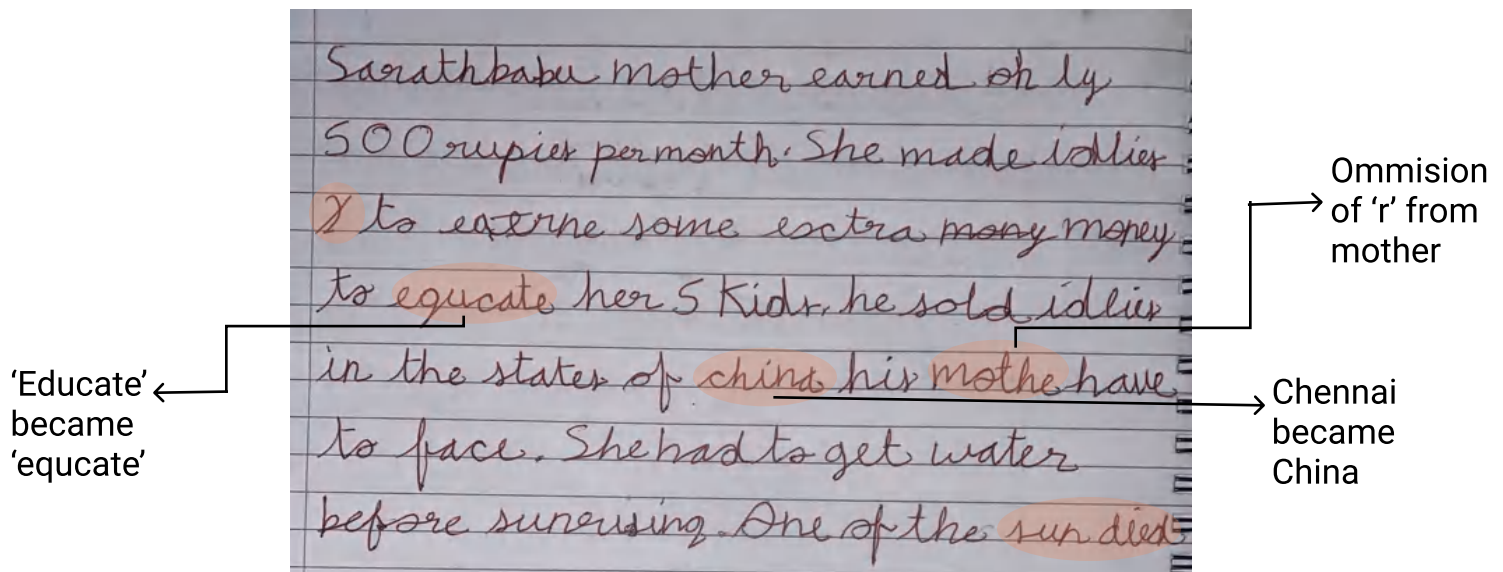 Sarathbabu mother earned on ly
500 rupies per month. She made idlies
to eaxrne some exctra many money
to equcate her 5 Kids, he sold idlies
in the states of china his mothe have
to face. She had to get water
before sunrusing. One of the sun died
Ommision
of ‘r’ from
mother
‘Educate’
became
‘equcate’
Chennai
became
China